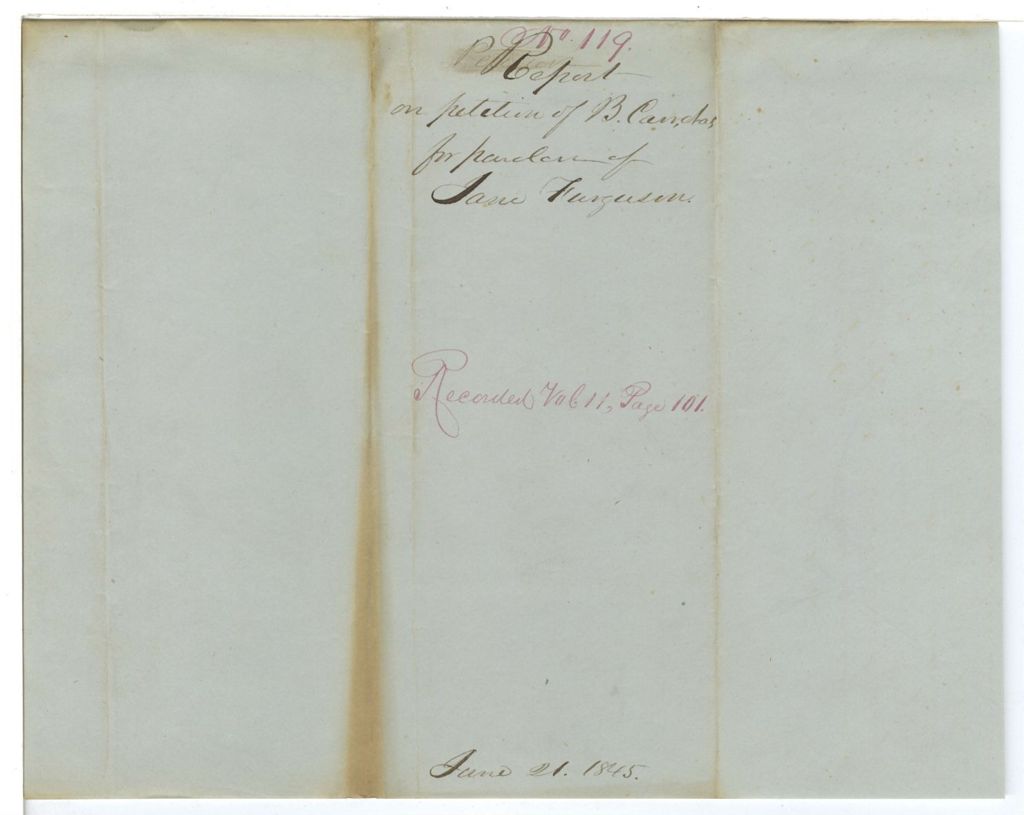 No. 119.
Report
on petition of B.
for pardon of
Jane Furguson.
Recorded Vol 11, Page 101.
June 21. 1845.